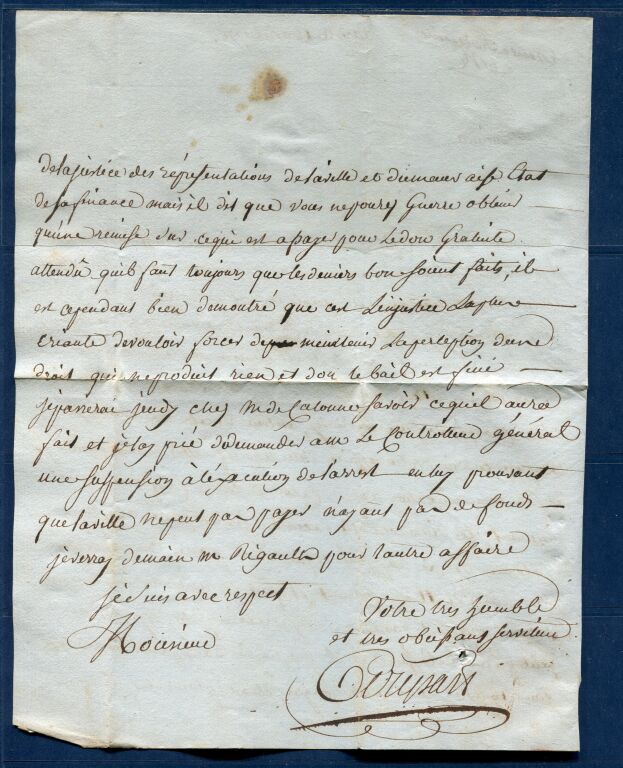 dela justice des réprésentations delaville et dumauvaise Etat
desafinance mais il dit que vous nepourez Guerre obtenir
qu'une remise sur cequi est apayer pour Ledon Gratuite
attendu quil faut toujours que les deniers bon soient faits, il
est cependant bien demontré que cest L'injustice La plus
criante devouloir forcer de maintenir La perception d'une
droit qui neproduit rien et don le bail est fini
jepasserai jeudy chez M. de Calonne savoir cequil aura
fait et jelay prié dedemander a M. Le Controlleur général
une suspension à l'éxécution delarrest en luy prouvant
que laville nepeut pas payer n'ayant pas de fonds
jeverray demain m Rigault pour lautre affaire
je suis avec respect
Votre tres humble
Monsieur
et tres obeissans serviteur